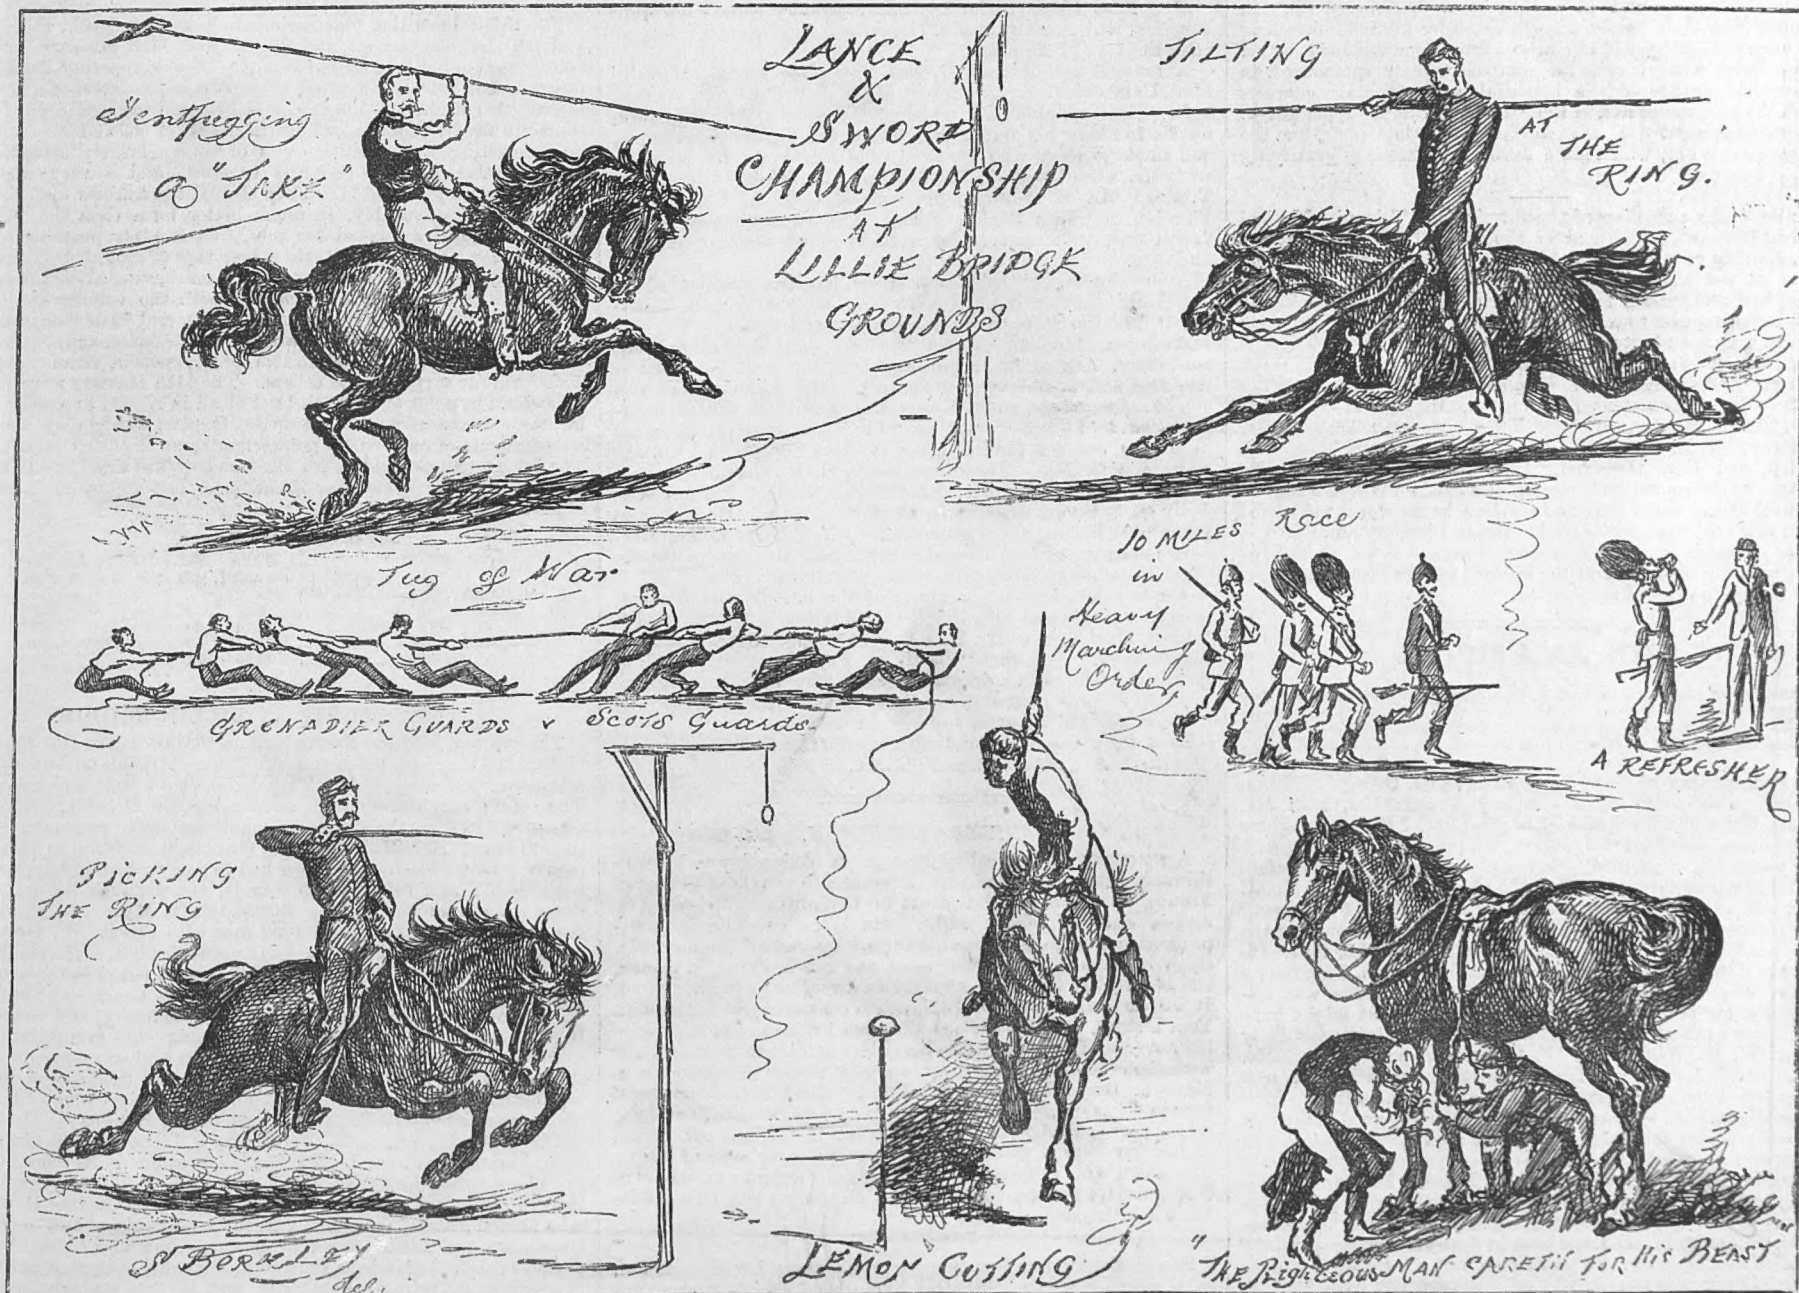 LANCE
&
SWORD
CHAMPIONSHIP
AT
LILLIE BRIDGE
GROUNDS
Tentpegging
a "TAKE"
TILTING
AT
THE
RING.
Tug of War
GRENADIER GUARDS v SCOTS Guards
10 MILES Race
in
Heavy
Marching
Order
A REFRESHER
PICKING
THE RING
LEMON CUTTING
"THE RIGHTEOUS MAN CARETH FOR HIS BEAST"
S BERKLEY
del.